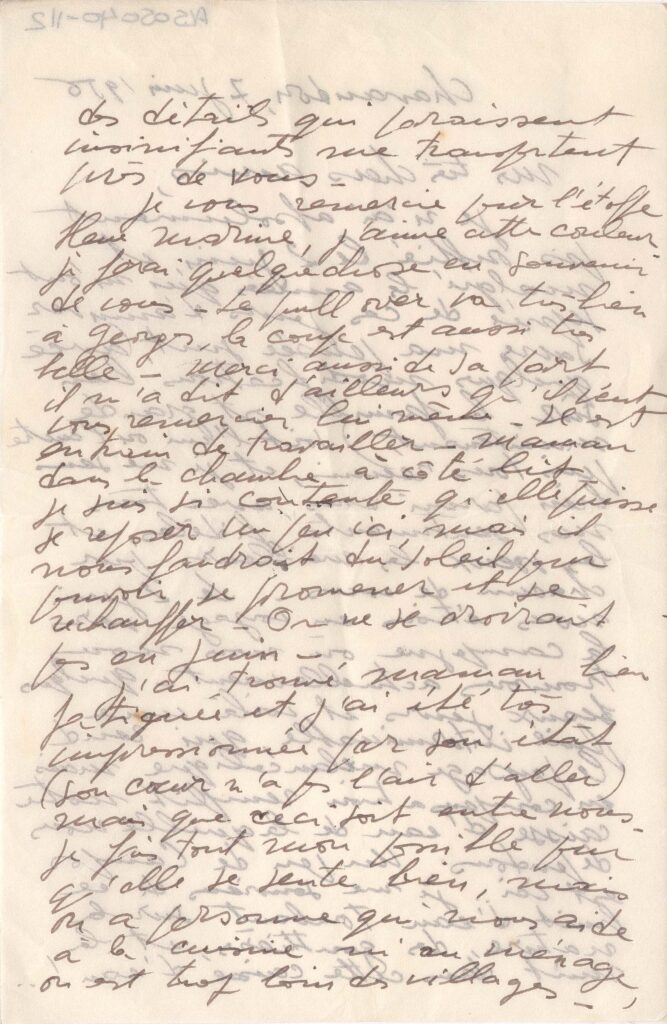 des détails qui paraissent
insinifiants me transportent
près de vous -
je vous remercie pour l'étoffe
bleue marine, j'aime cette couleur
je ferai quelque chose en souvenir
de vous - Le pull over va très bien
à Georges, la coupe est aussi très
belle - merci aussi de sa part
il m'a dit d'ailleurs qu'il veut
vous remercier lui même - Il est
entrain de travailler - maman
dans la chambre à côté lit
je suis si contente qu'elle puisse
se reposer un peu ici, mais il
nous faudrait du soleil pour
pouvoir se promener et se
rechauffer - On ne se croirait
pas en Juin -
J'ai trouvé maman bien
fatiguée et j'ai été très
impressionnée par son état
(son cœur n'a pas l'air d'aller)
mais que ceci soit entre nous -
je fais tout mon possible pour
qu'elle se sente bien, mais
on a personne qui nous aide
à la cuisine ni au ménage,
on est trop loin des villages -,